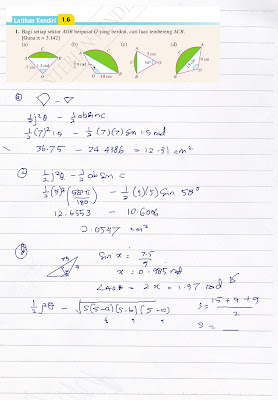 Latihan Kendiri 1.6
1. Bagi setiap sektor AOB berpusat O yang berikut, cari luas tembereng ACB.
[Guna π = 3.142]
(a) (b) (c) (d)
½j²θ - ½absinC
½(7)²1.5 - ½(7)(7) Sin 1.5 rad
36.75 - 24.4386 = 12.31 cm²
½j²θ - ½absinC
12.6553 - 10.6006
2.0547 cm²
Sin x = 7.5/9
x = 0.985 rad
∠AOB = 2x = 1.97 rad
½j²θ - √S(S-a)(S-b)(S-c)
S = (15+9+9)/2
S =